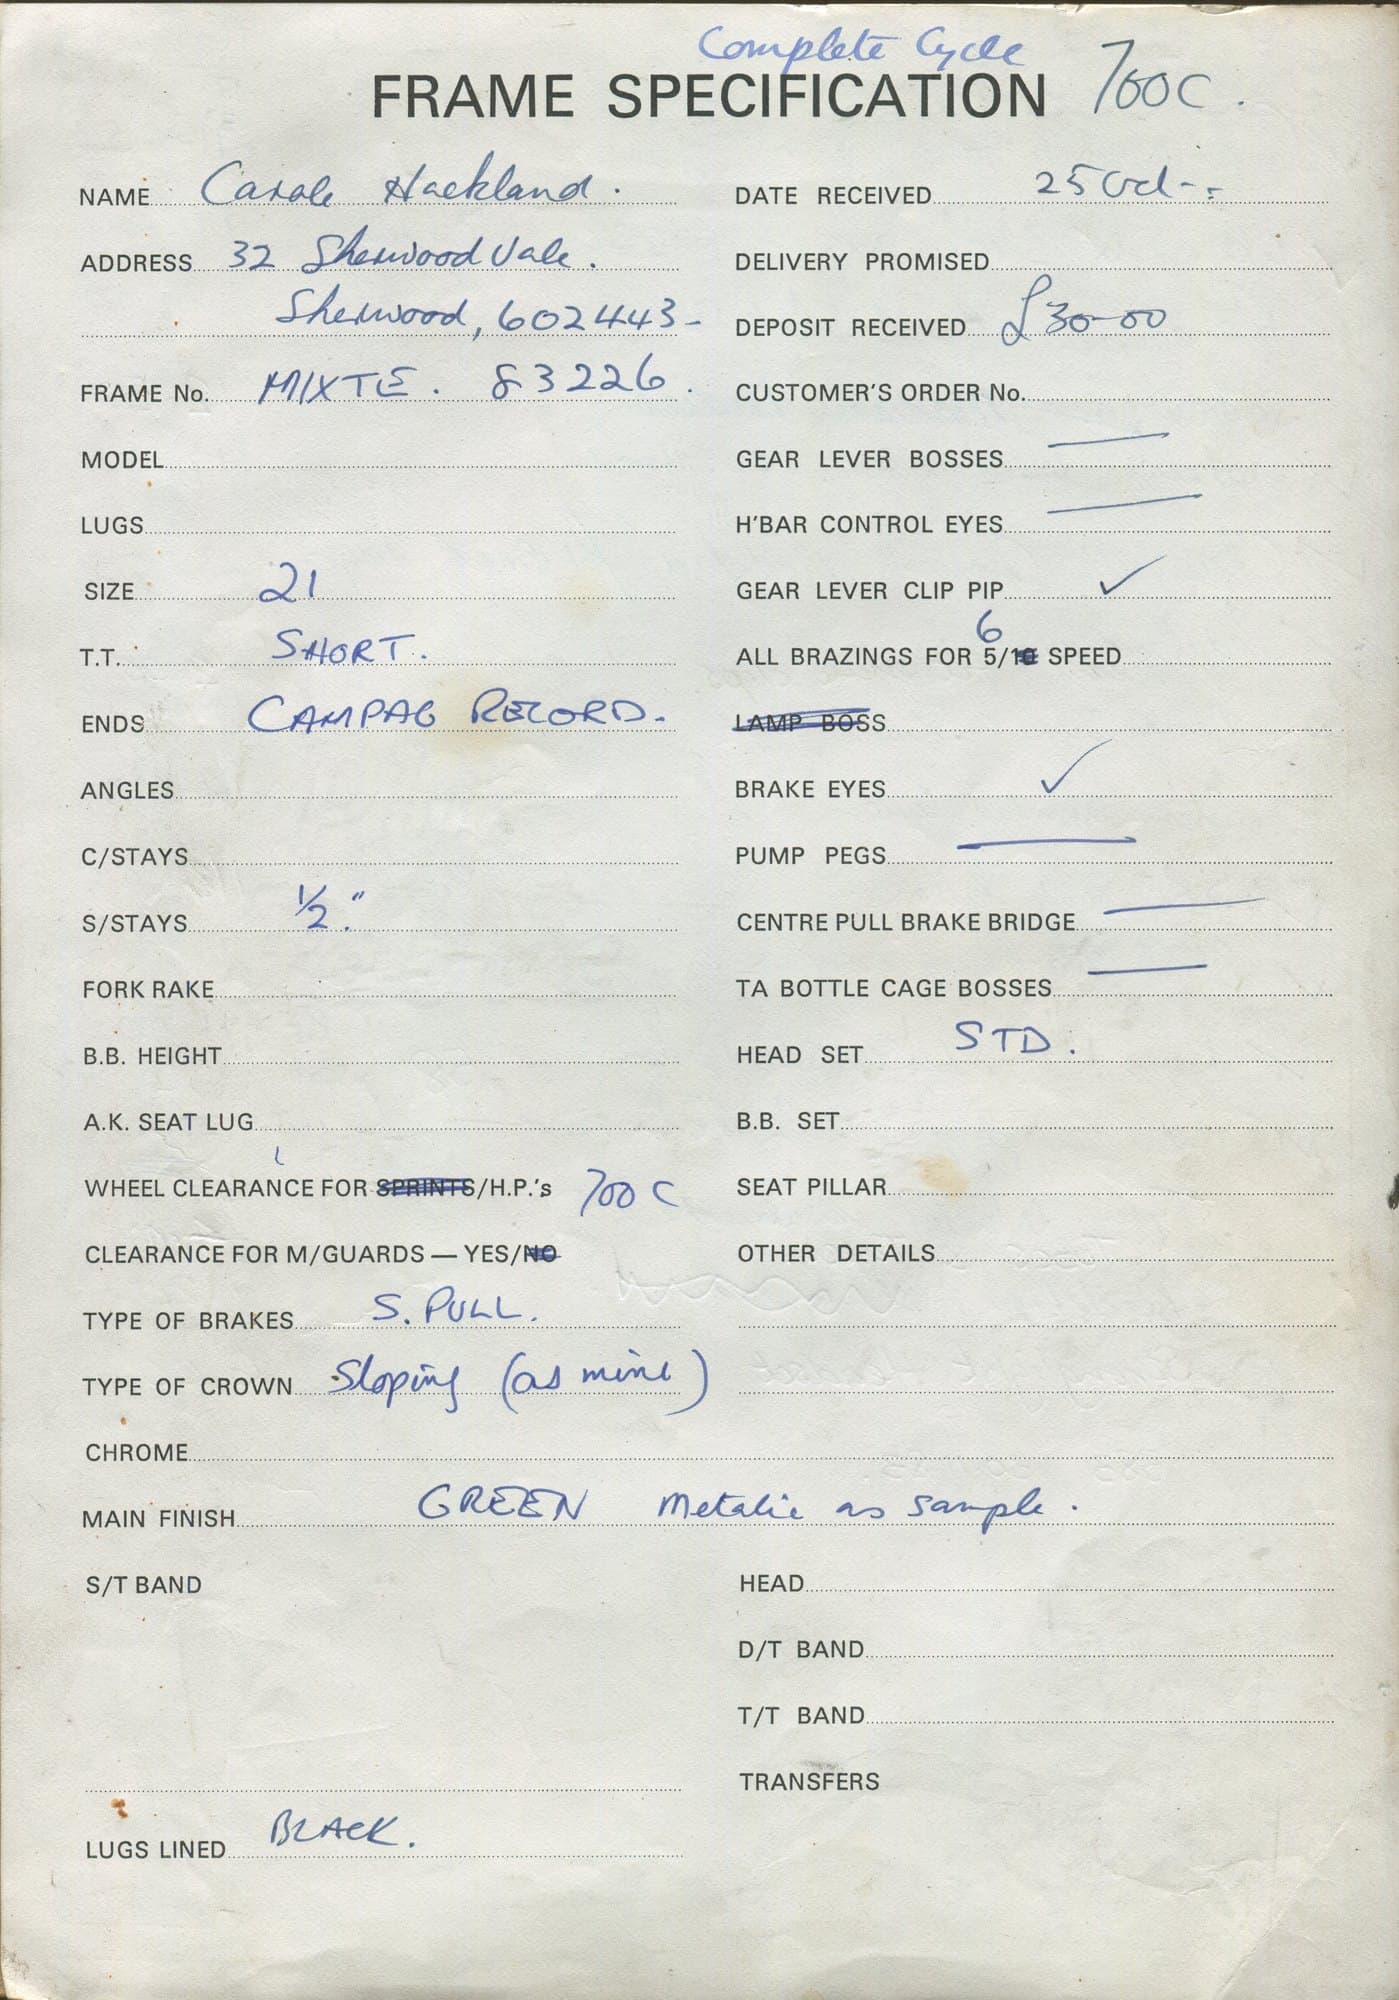 Complete Cycle
FRAME SPECIFICATION 700C.
NAME Carole Hackland.
ADDRESS 32 Sherwood Vale.
Sherwood, 602443-
FRAME No. MIXTE. 83226.
MODEL
LUGS
SIZE 21
T.T. SHORT.
ENDS CAMPAG RECORD.
ANGLES
C/STAYS
S/STAYS 1/2"
FORK RAKE
B.B. HEIGHT
A.K. SEAT LUG
WHEEL CLEARANCE FOR SPRINTS/H.P.'s 700C
CLEARANCE FOR M/GUARDS — YES/NO
TYPE OF BRAKES S. PULL.
TYPE OF CROWN Sloping (as mine)
CHROME
MAIN FINISH GREEN Metalic as sample.
S/T BAND
LUGS LINED BLACK.
DATE RECEIVED 25 Oct
DELIVERY PROMISED
DEPOSIT RECEIVED £30-00
CUSTOMER'S ORDER No.
GEAR LEVER BOSSES —
H'BAR CONTROL EYES —
GEAR LEVER CLIP PIP ✓
6
ALL BRAZINGS FOR 5/10 SPEED
LAMP BOSS
BRAKE EYES ✓
PUMP PEGS —
CENTRE PULL BRAKE BRIDGE —
TA BOTTLE CAGE BOSSES —
HEAD SET STD.
B.B. SET
SEAT PILLAR
OTHER DETAILS
HEAD
D/T BAND
T/T BAND
TRANSFERS